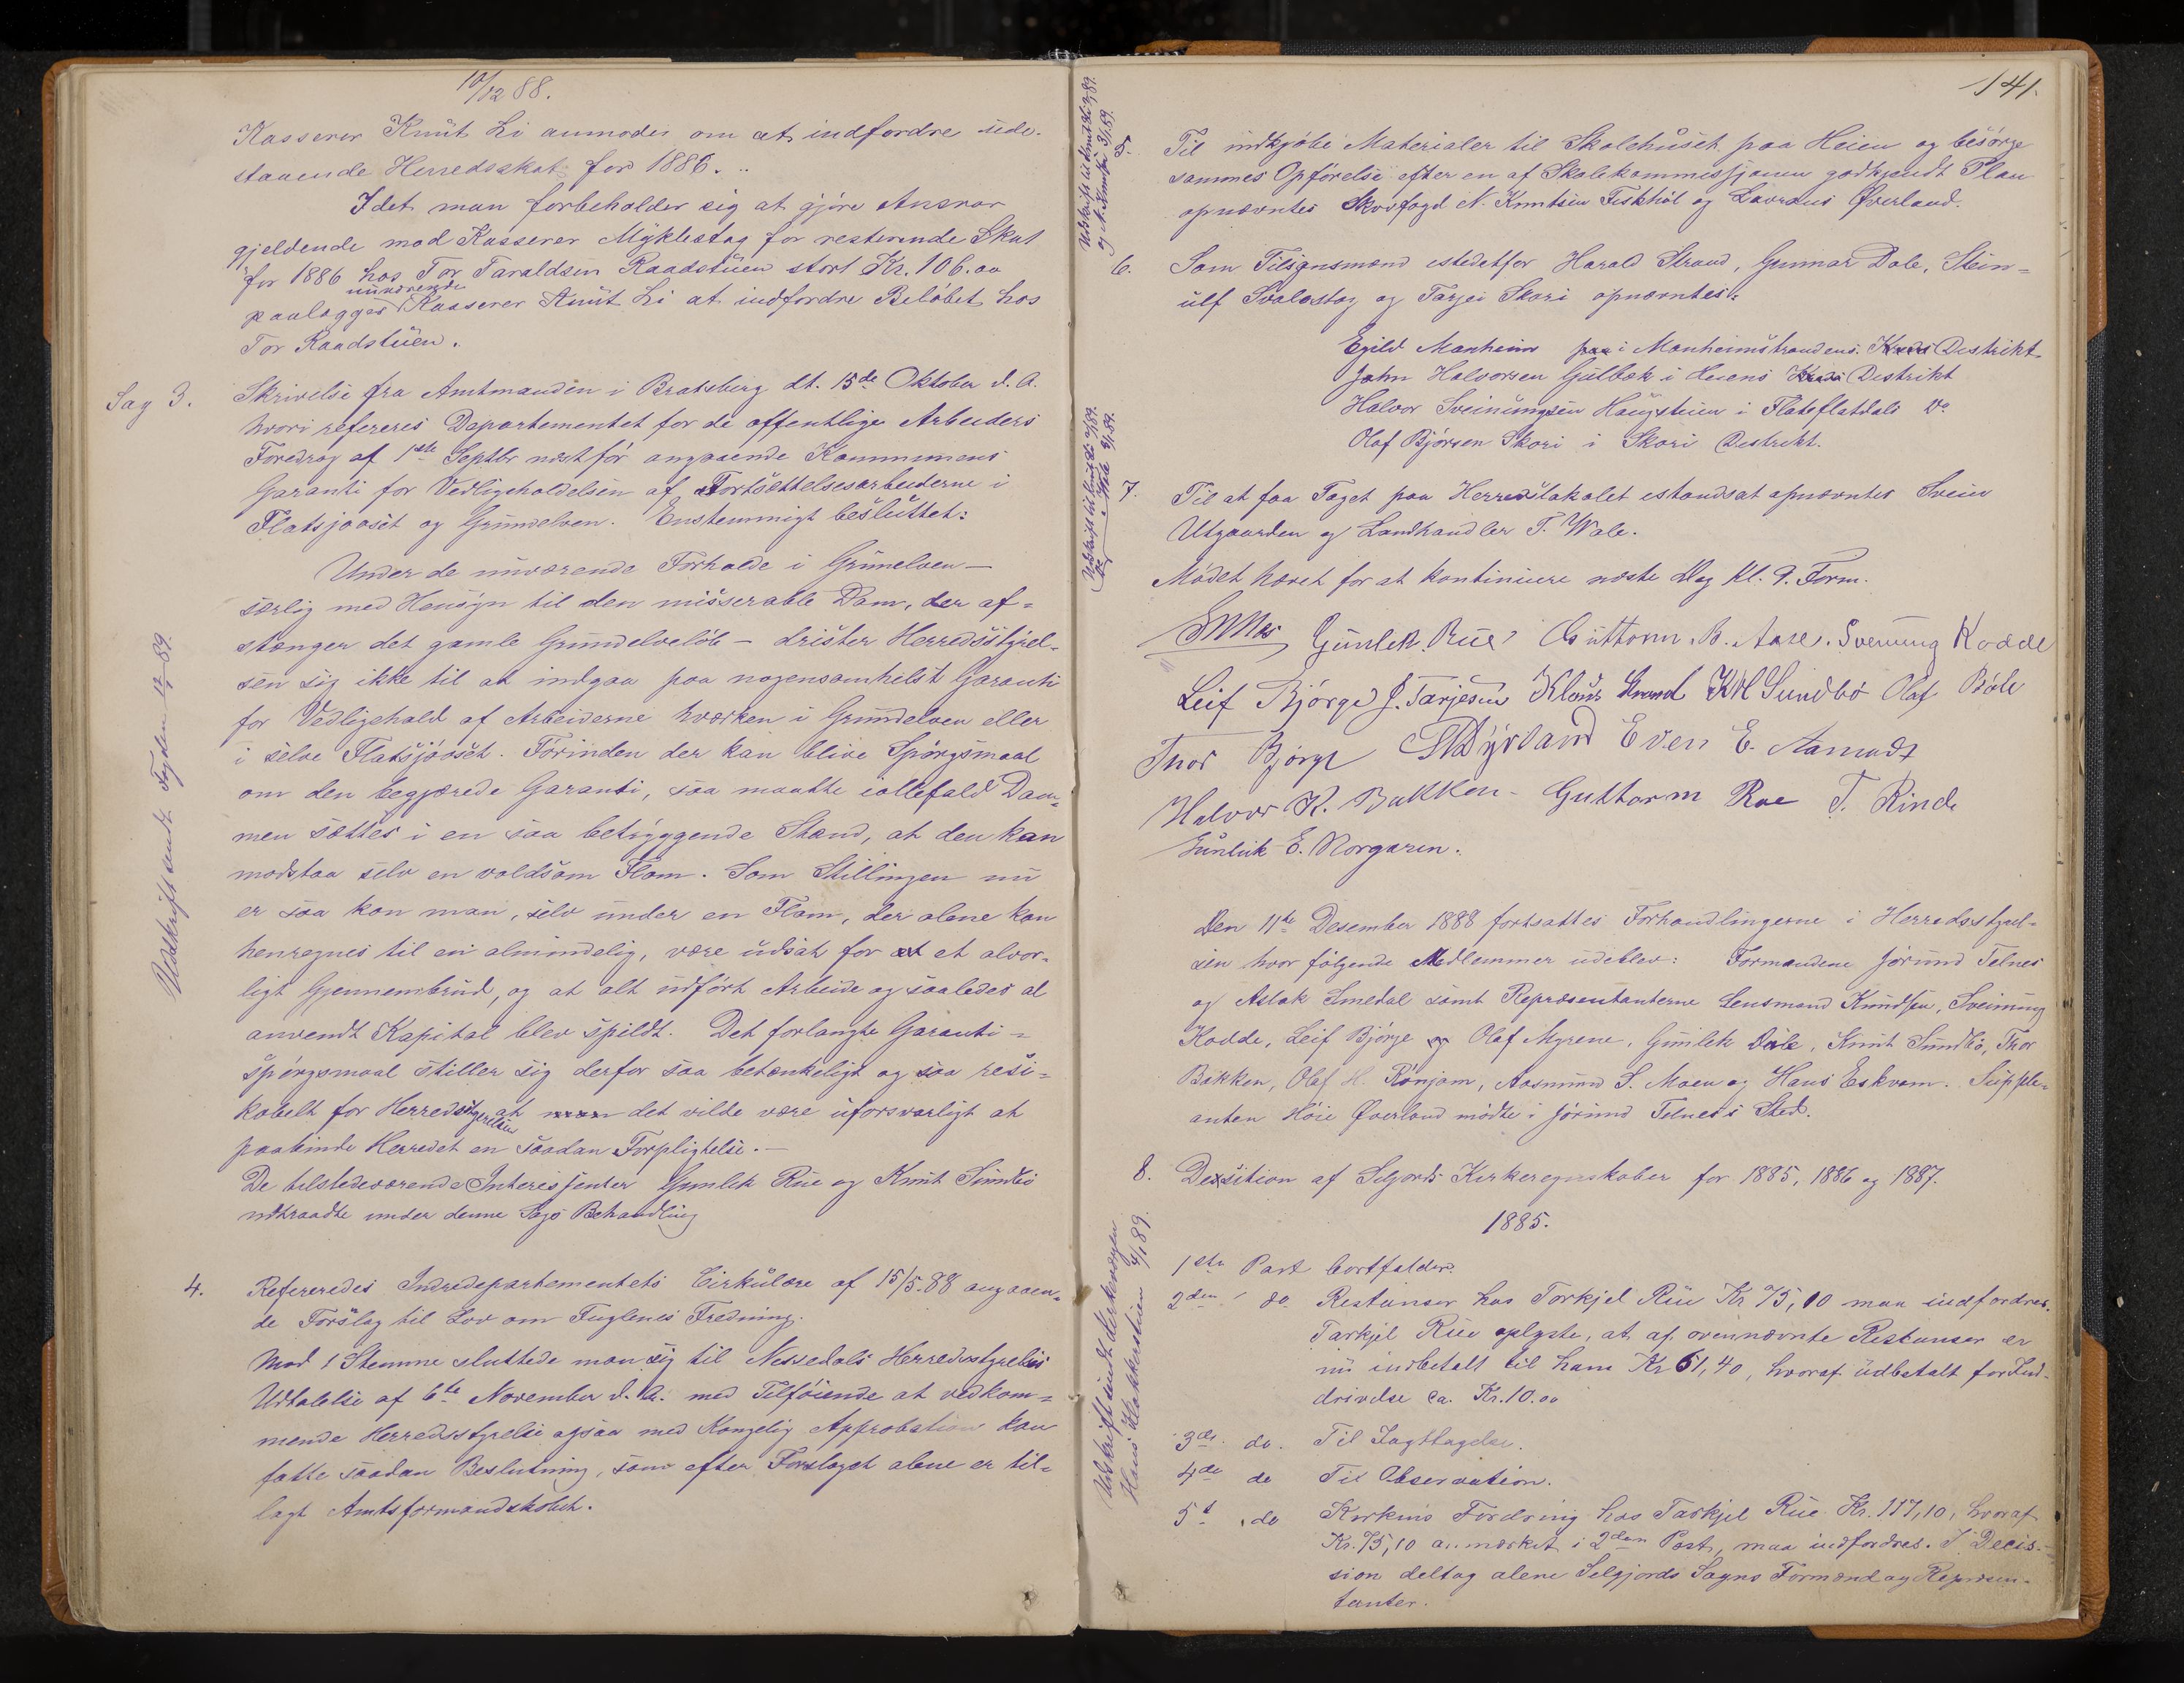 10/12 88.
Kasserer Knut Li anmodes om at indfordre ude-
staaende Herredsskat for 1886.
Idet man forbeholder sig at gjøre Ansvar
gjeldende mod Kasserer Myklestøg for resterende Skat
for 1886 hos Tor Taraldsen Raadstuen stort Kr. 106.00
paalægges nuværende Kasserer Knut Li at indfordre Beløbet hos
Tor Raadstuen.
Sag 3. Skrivelse fra Amtmanden i Bratsberg dt. 15de Oktober d. A.
hvori refereres Departementet for de offentlige Arbeiders
Foredrag af 1ste Septbr næstfør angaaende Kommunens
Garanti for Vedligeholdelsen af Fortsættelsesarbeiderne i
Flatsjøoset og Grundelven. Enstemmigt besluttet:
Under de nuværende Forholde i Grunelven –
særlig med Hensyn til den misserable Dam, der af=
stænger det gamle Grundelveløb – drister Herredsstyrel-
sen sig ikke til at indgaa paa nogensomhelst Garanti
for Vedligehold af Arbeiderne hværken i Grundelven eller
i selve Flatsjøoset. Førinden der kan blive Spørgsmaal
om den begjærede Garanti, saa maatte iallefald Dam=
men sættes i en saa betryggende Stand, at den kan
modstaa selv en voldsom Flom. Som Stillingen nu
er saa kan man, selv under en Flom, der alene kan
henregnes til en almindelig, være udsat for at et alvor-
ligt Gjennembrud, og at alt udført Arbeide og saaledes al
anvendt Kapital blev spildt. Det forlangte Garanti=
spørgsmaal stiller sig derfor saa betænkeligt og saa resi=
kabelt for Herredsstyrelsen at det vilde være uforsvarligt at
paabinde Herredet en saadan Forpligtelse. –
De tilstedeværende Interessenter Gunlek Rue og Knut Sundbø
udtraadte under denne Sags Behandling
Udskrift sendt Fogden 1/2 – 89.
4. Refereredes Indredepartementets Cirkulære af 15/5.88 angaaen-
de Forslag til Lov om Fuglenes Fredning.
Mod 1 Stemme sluttede man sig til Nissedals Herredsstyrelses
Udtalelse af 6te November d. A. med Tilføiende at vedkom=
mende Herredsstyrelse ogsaa med Kongelig Approbation kan
fatte saadan Beslutning, som efter Forslaget alene er til=
lagt Amtsformandskabet.
141.
5. Til indkjøbe Materialer til Skolehuset paa Heien og besørge
sammes Opførelse efter en af Skolekommissjonen godkjendt Plan
opnævntes Skovfogd N. Knutsen Fiskhøl og Lavrans Øverland.
6. Som Tilsynsmænd istedetfor Harald Strand, Gunnar Dale, Stein=
ulf Svalastog og Tarjei Skori opnævntes:
Egild Manheim i Manheimstrandens Distrikt
John Halvorsen Gulbæk i Heiens Distrikt
Halvor Sveinungsen Haugstuen i Flateflatdals Do
Olaf Bjørsen Skori i Skori Distrikt.
7. Til at faa Taget paa Herredslokalet istandsat opnævntes Svein
Utgaarden og Landhandler T. Wale.
Mødet hævet for at kontinuere næste Dag Kl. 9. Form.
Gunlek Rue Guttorm B. Aase. Sveinung Kodde
Leif Bjørge J. Tarjesen Klaus Strand K H Sundbø Olaf Bøle
Thor Bjørge Dyrland Even E. Aamodt
Halvor K. Bakken – Guttorm Roe T. Rinde
Gunleik E. Norgaren.
Den 11te Desember 1888 fortsattes Forhandlingerne i Herredsstyrel-
sen hvor følgende Medlemmer udeblev: Formændene Jørund Telnes
og Aslak Smedal samt Repræsentanterne Lensmand Knudsen, Sveinung
Kodde, Leif Bjørge og Olaf Myrene, Gunlek Dale, Knut Sundbø, Thor
Bakken, Olaf H. Rønjom, Aasmund S. Moen og Hans Eskvam. Supple-
anten Høie Øverland mødte i Jørund Telnes's Sted.
8. Desition af Seljords Kirkeregnskaber for 1885, 1886 og 1887.
1885.
1ste Post bortfalder.
2den do Restanser hos Torkjel Rue Kr 75,10 maa indfordres.
Tarkjel Rue oplyste, at af ovennævnte Restanser er
nu indbetalt til ham Kr 61,40, hvoraf udbetalt for Ind-
drivelse ca. Kr. 10.00
3de do. Til Iagttagelse.
4de do Til Observation.
5t do Kirkens Fordring hos Tarkjel Rue Kr. 117,10, hvoraf
Kr. 75,10 anmærket i 2den Post, maa indfordres. I Decis-
sion deltog alene Selgjords Sogns Formænd og Repræsen-
tanter.
Udskrift sendt Kirkeværgen
Hans Haakenstuen 4/1 89.